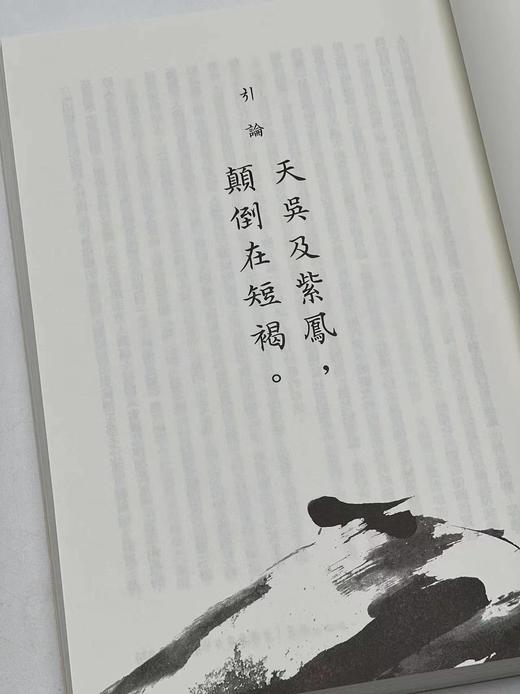 引論
天吳及紫鳳，
顛倒在短褐。